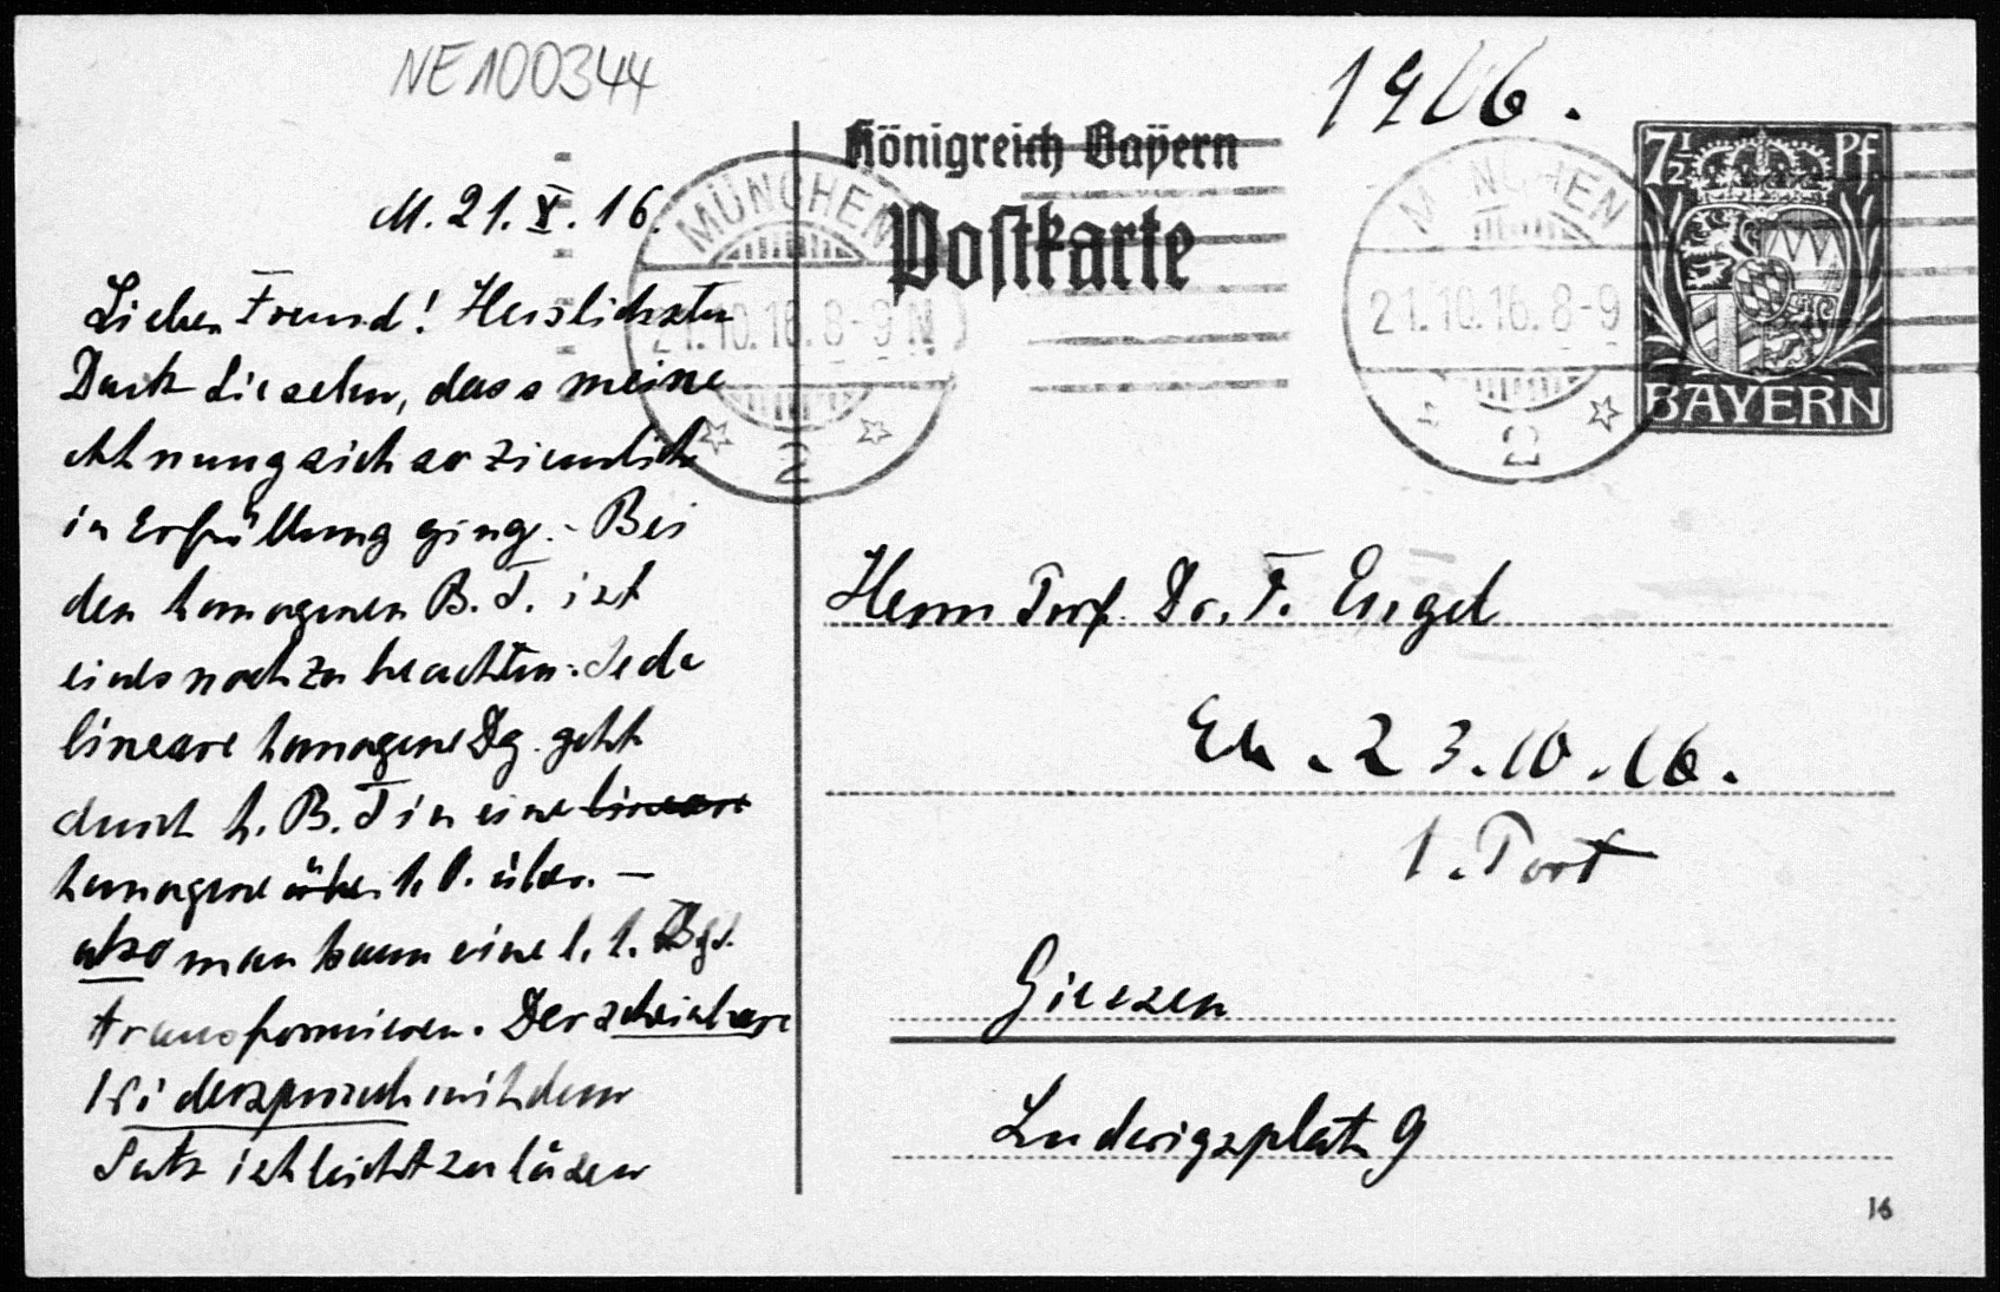 NE100344
M. 21. X. 16.
Lieber Freund! Herzlichsten
Dank Sie sehen, dass meine
Ahnung sich so ziemlich
in Erfüllung ging. - Bei
den homogenen B. T. ist
eines noch zu beachten: Jede
lineare homogene Dg. geht
durch h. B. T in eine lineare
homogene 1. O. über. -
also man kann eine l. h. Dgl.
transformieren. Der scheinbare
Widerspruch mit dem
Satz ist leicht zu lösen
1916.
Königreich Bayern
Postkarte
MÜNCHEN
21.10.16. 8-9 N
2
MÜNCHEN
21.10.16. 8-9
2
7½ Pf
BAYERN
Herrn Prof. Dr. F. Engel
Eh. 23.10.16.
Giessen
Ludwigsplatz 9
16